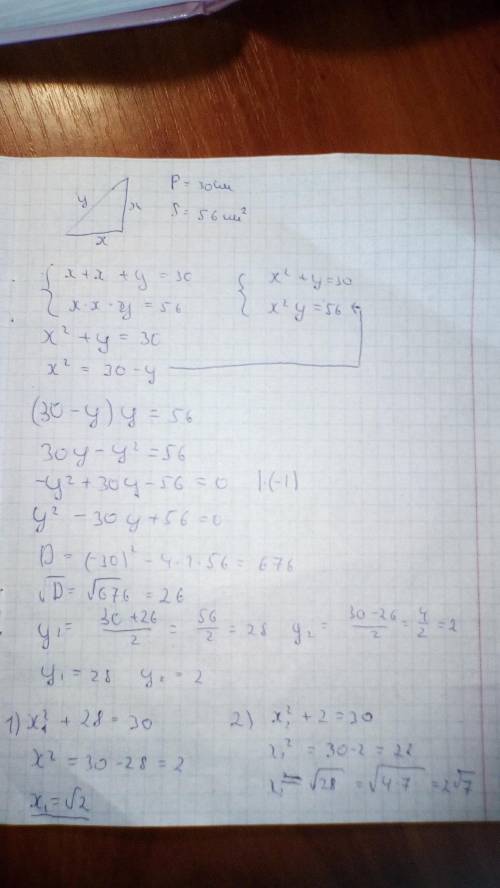 y x P = 30 см
x S = 56 см²
{ x + x + y = 30 { x² + y = 30
x · x · y = 56 x² y = 56
x² + y = 30
x² = 30 - y
(30 - y) y = 56
30y - y² = 56
-y² + 30y - 56 = 0 | · (-1)
y² - 30y + 56 = 0
D = (-30)² - 4 · 1 · 56 = 676
√D = √676 = 26
y₁ = (30 + 26)/2 = 56/2 = 28 y₂ = (30 - 26)/2 = 4/2 = 2
y₁ = 28 y₂ = 2
1) x₁² + 28 = 30 2) x₂² + 2 = 30
x² = 30 - 28 = 2 x₁² = 30 - 2 = 28
x₁ = √2 x₁ = √28 = √4·7 = 2√7